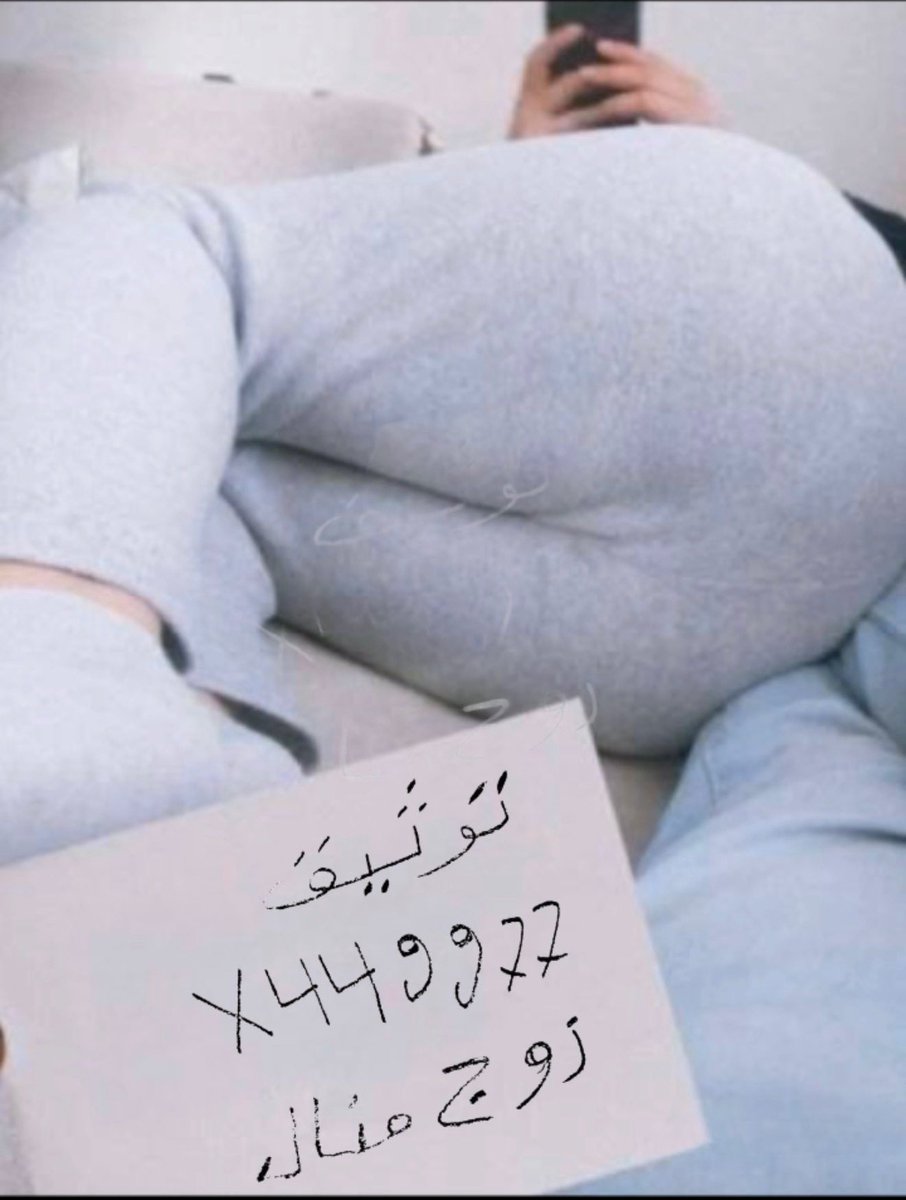 توثيق
X449977
زوج منال